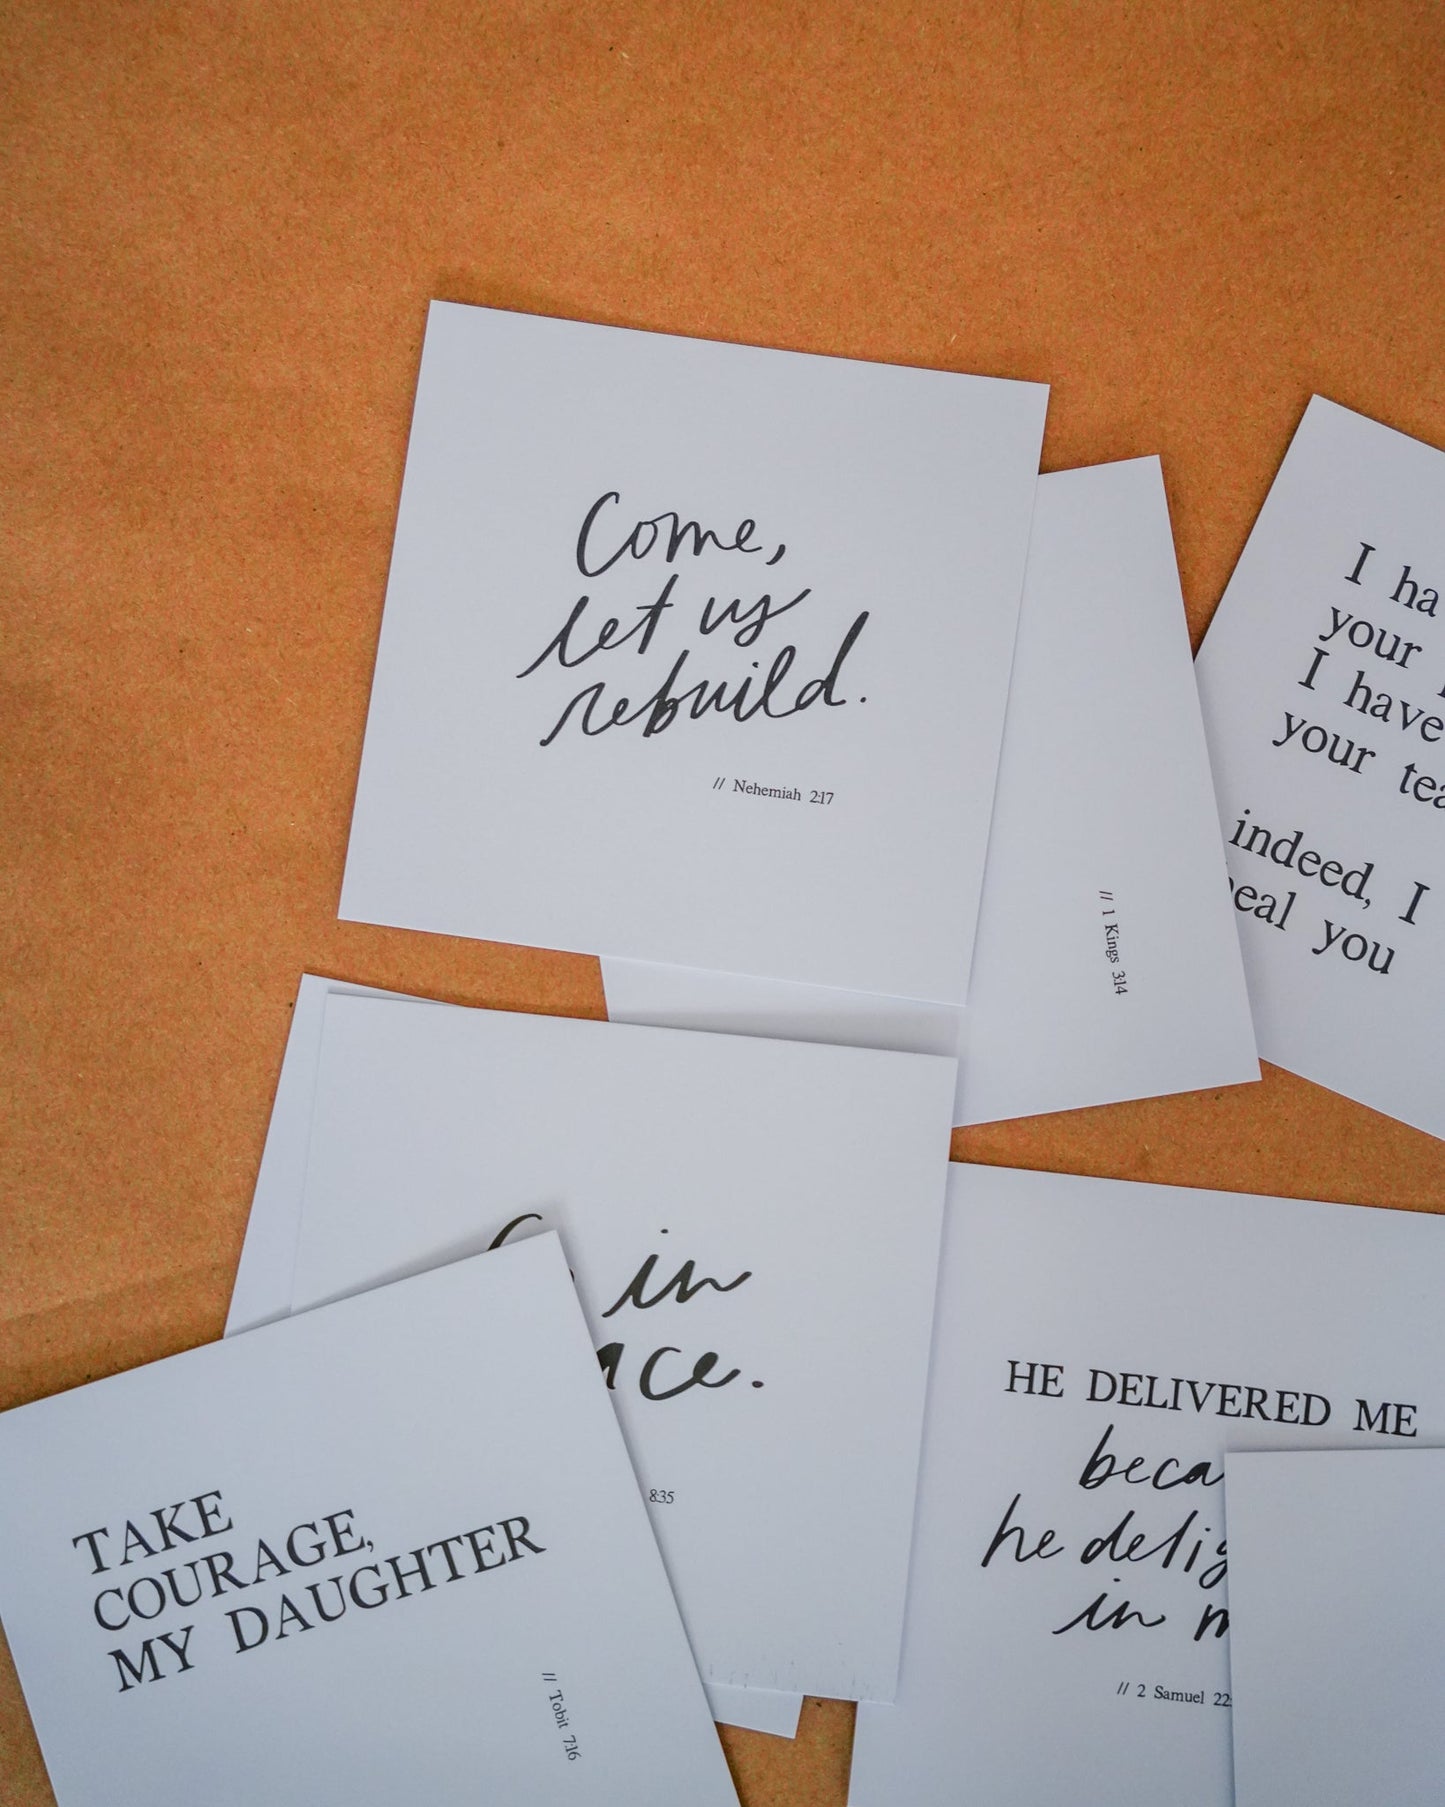 Come,
let us
rebuild.
// Nehemiah 2:17
// 1 Kings 3:14
I ha
your
I have
your tea
indeed, I
heal you
in
ace.
8:35
TAKE
COURAGE,
MY DAUGHTER
// Tobit 7:16
HE DELIVERED ME
beca
he delig
in m
// 2 Samuel 22: